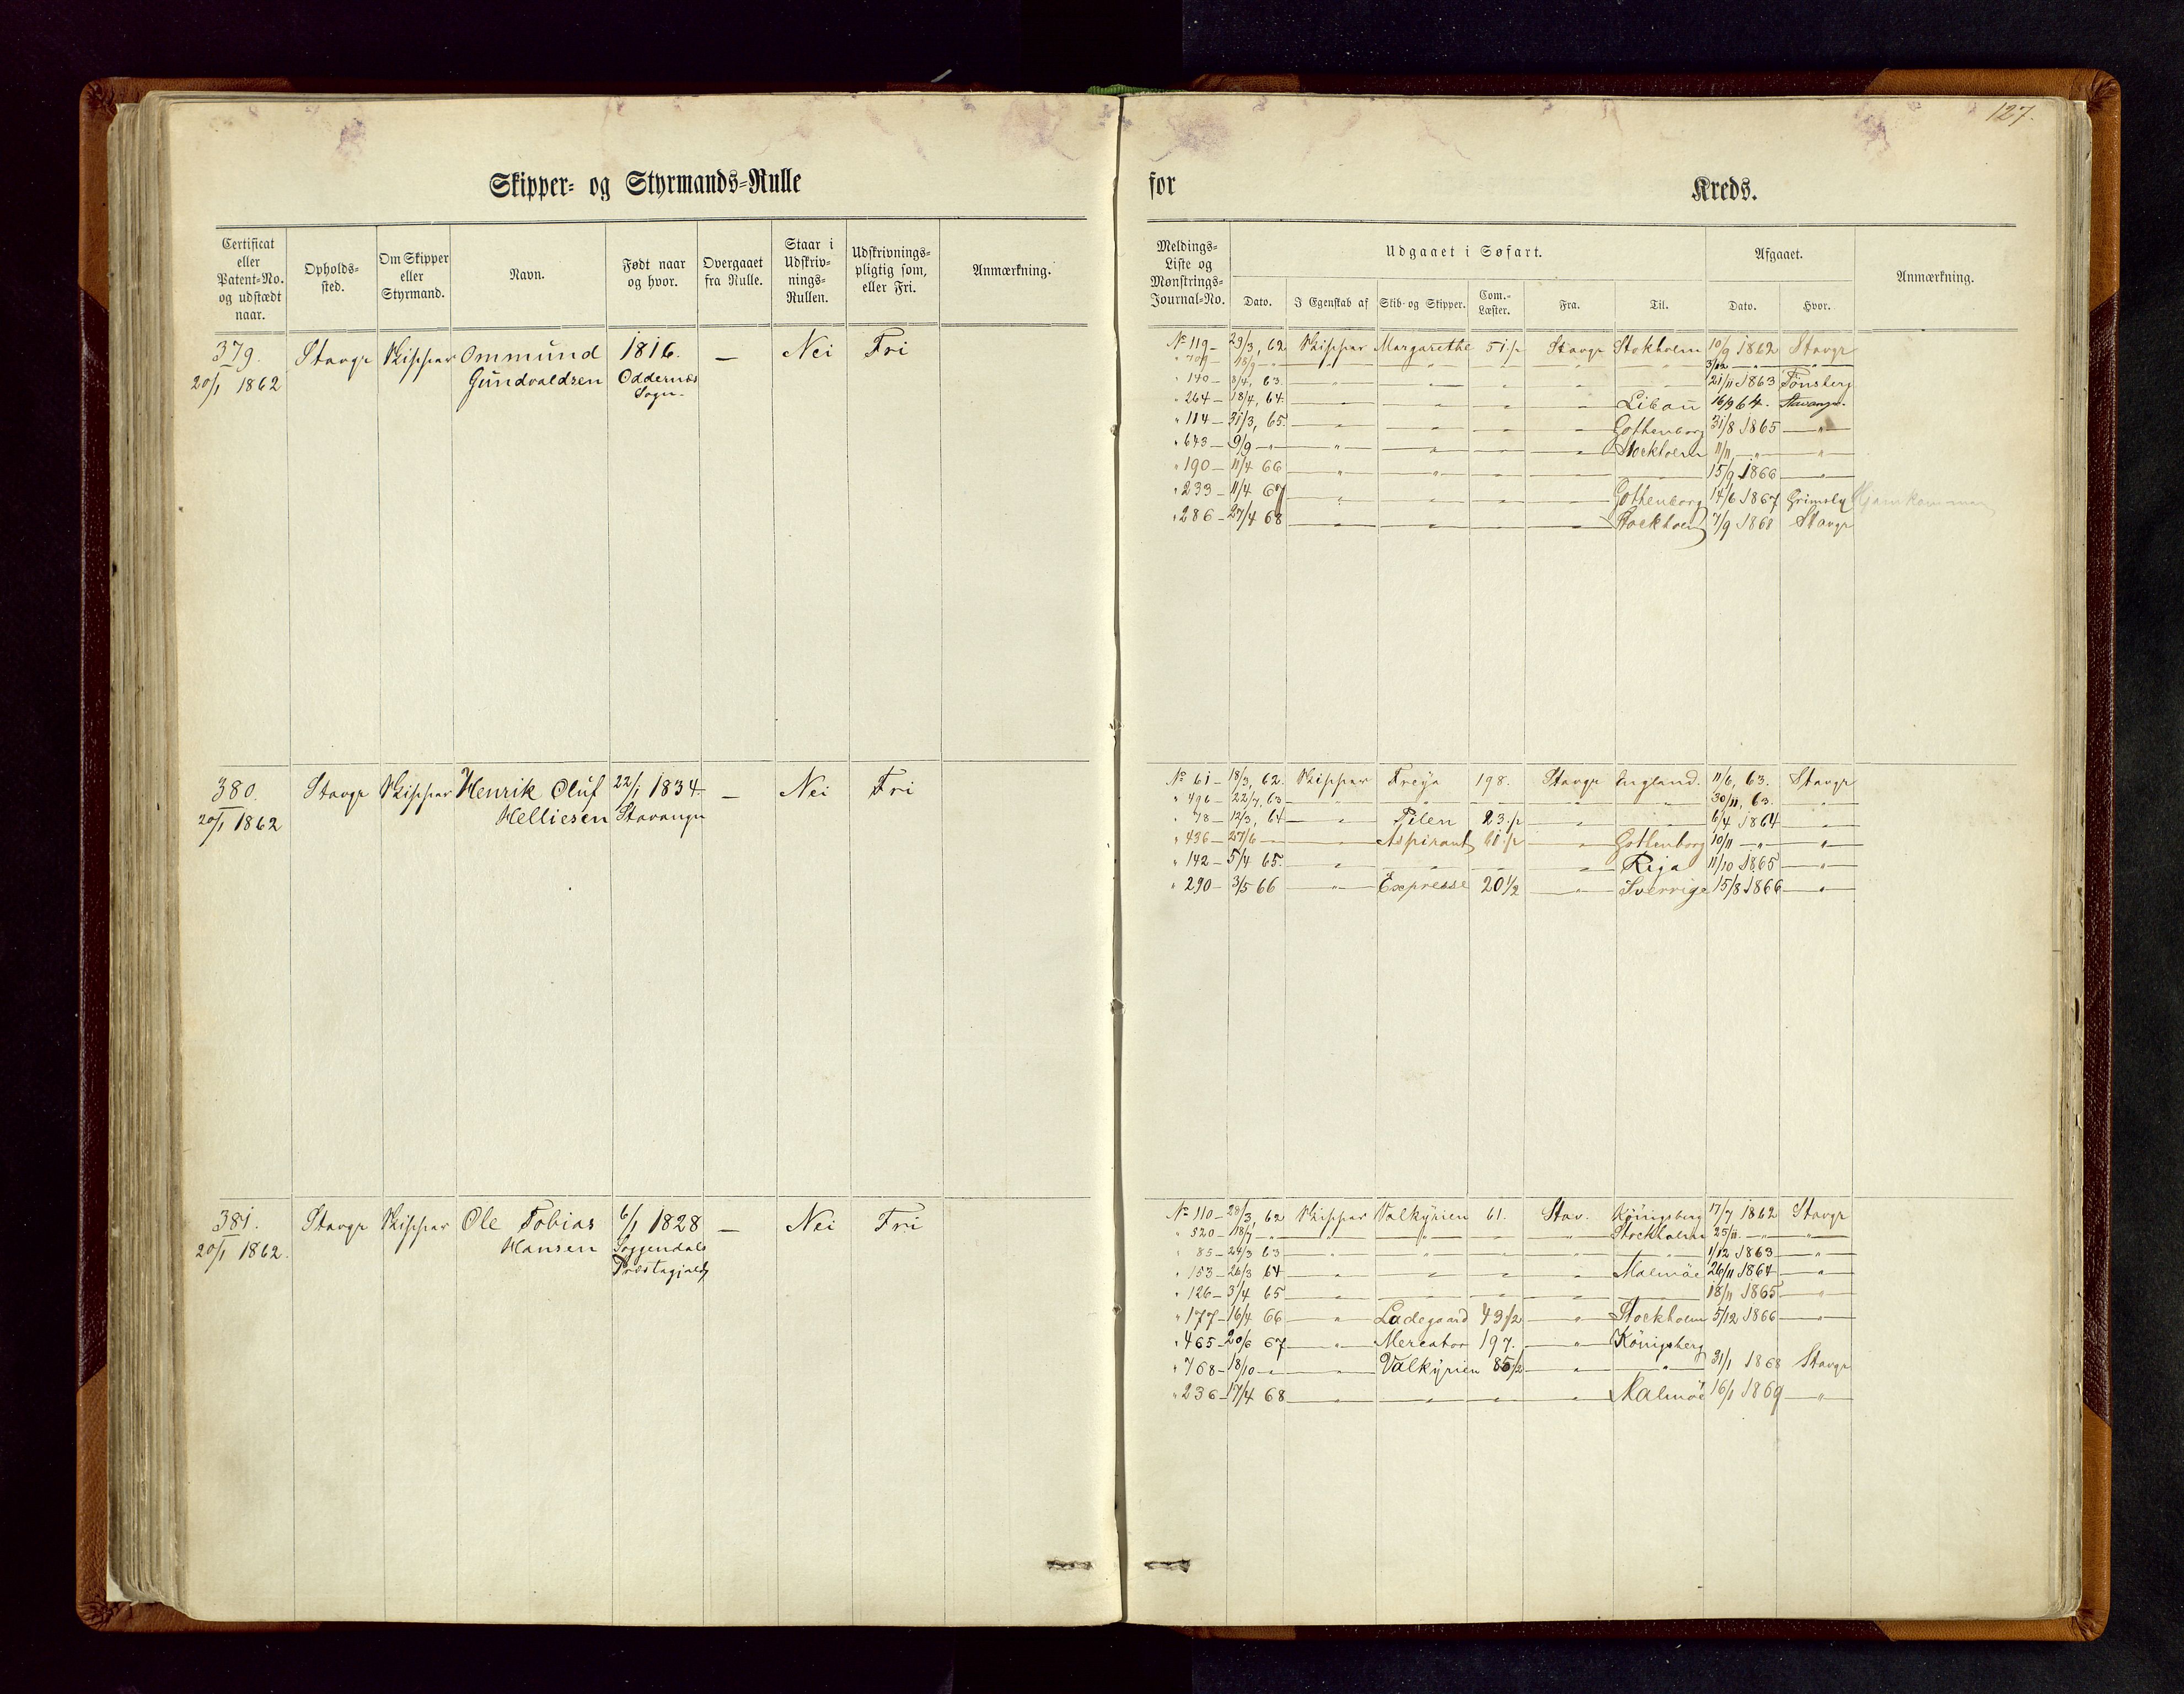 127.
Skipper- og Styrmands-Rulle for Kreds.
Certificat eller Patent-No. og udstædt naar. Opholds-sted. Om Skipper eller Styrmand. Navn. Født naar og hvor. Overgaaet fra Rulle. Staar i Udskriv-nings-Rullen. Udskrivnings-pligtig som, eller Fri. Anmærkning.
Meldings-Liste og Mønstrings-Journal-No. Udgaaet i Søfart. Afgaaet. Anmærkning.
Dato. I Egenskab af Skib- og Skipper. Com.-Læster. Fra. Til. Dato. Hvor.
379. Stavgr Skipper Ommund 1816. — Nei Fri
20/1 1862 Gundvaldsen Oddernes
Sogn.
No 119 — 29/3, 62 Skipper Margarethe 51.½ Stavgr Stokholm 10/9 1862 Stavgr
" 709 — 18/9 — " — " — " — " — " — " 3/12 — " — "
" 140 — 8/4, 63. — " — " — " — " — " 21/11 1863 Tønsberg
" 264 — 18/4, 64. — " — " — " — " Libau 16/9 64. Stavanger.
" 114 — 31/3, 65. — " — " — " — " Gothenborg 31/8 1865 — "
" 643 — 9/9 — " — " — " — " — " Stockholm 11/11 — " — "
" 190 — 11/4 66 — " — " — " — " — " 15/9 1866 — "
" 233 — 11/4 67 — " — " — " — " Gothenborg 14/6 1867 Grimsby Hjemkommen
" 286 — 27/4 68 — " — " — " — " Stockholm 7/9 1868 Stavgr
380. Stavgr Skipper Henrik Oluf 22/1 1834. — Nei Fri
20/1 1862 Helliesen Stavanger
No 61 — 18/3, 62. Skipper Freya 198. Stavgr England. 11/6, 63. Stavgr
" 496 — 22/7, 63 — " — " — " — " — " 30/11, 63. — "
" 78 — 12/3, 64 — " — Pilen 23.½ — " — " 6/4 1864 — "
" 436 — 27/6 — " — Aspirant 61.½ — " Gothenborg 10/11 — " — "
" 142 — 5/4 65. — " — " — " — " Riga 11/10 1865 — "
" 290 — 3/5 66 — " — Expresse 20½ — " Sverrige 15/8 1866 — "
381. Stavgr Skipper Ole Tobias 6/1 1828 — Nei Fri
20/1 1862. Hansen Soggendals
Præstegjeld
No 110 — 28/3, 62 Skipper Valkyrien 61. Stav. Königsberg 17/7 1862 Stavgr
" 520 — 18/7 — " — " — " — " — " Stockholm 25/11. — " — "
" 85 — 24/3 63 — " — " — " — " — " 1/12 1863 — "
" 153 — 26/3 64 — " — " — " — " Malmöe 26/11 1864 — "
" 126 — 3/4 65 — " — " — " — " — " 18/11 1865 — "
" 177 — 16/4 66 — " — Ladegaard 49½ — " Stockholm 5/12 1866 — "
" 465 — 20/6 67 — " — Mercator 197. — " Königsberg
" 768 — 18/10 — " — " Valkyrien 85½ — " — " 31/1 1868 Stavgr
" 236 — 17/4 68 — " — " — " — " Malmöe 16/1 1869 — "